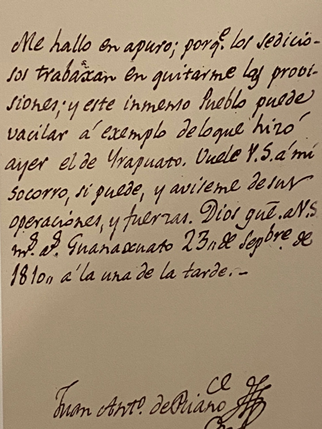 Me hallo en apuro; porq.e los sedicio-
sos trabaxan en quitarme los provi-
siones; y este inmenso Pueblo puede
vacilar á exemplo deloque hizó
ayer el de Yrapuato. Vuele V.S. á mi
socorro, si puede, y aviseme desus
operaciónes, y fuerzas. Dios gue. aV.S.
m.s a.s Guanaxuato 23,, de Sepbre. de
1810,, á la una de la tarde.-
Juan Anto. de Riaño